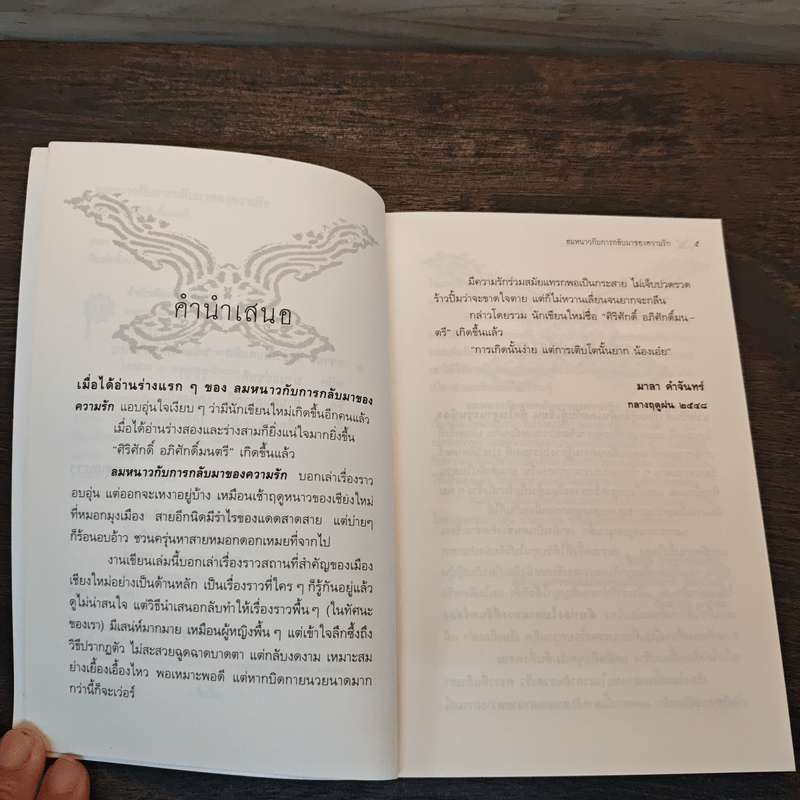 คำนำเสนอ
เมื่อได้อ่านร่างแรก ๆ ของ ลมหนาวกับการกลับมาของ
ความรัก แอบอุ่นใจเงียบ ๆ ว่ามีนักเขียนใหม่เกิดขึ้นอีกคนแล้ว
เมื่อได้อ่านร่างสองและร่างสามก็ยิ่งแน่ใจมากยิ่งขึ้น
“ศิริศักดิ์ อภิศักดิ์มนตรี” เกิดขึ้นแล้ว
ลมหนาวกับการกลับมาของความรัก บอกเล่าเรื่องราว
อบอุ่น แต่ออกจะเหงาอยู่บ้าง เหมือนเช้าฤดูหนาวของเชียงใหม่
ที่หมอกมุงเมือง สายอีกนิดมีรำไรของแดดสาดสาย แต่บ่ายๆ
ก็ร้อนอบอ้าว ชวนครุ่นหาสายหมอกดอกเหมยที่จากไป
งานเขียนเล่มนี้บอกเล่าเรื่องราวสถานที่สำคัญของเมือง
เชียงใหม่อย่างเป็นด้านหลัก เป็นเรื่องราวที่ใคร ๆ ก็รู้กันอยู่แล้ว
ดูไม่น่าสนใจ แต่วิธีนำเสนอกลับทำให้เรื่องราวพื้นๆ (ในทัศนะ
ของเรา) มีเสน่ห์มากมาย เหมือนผู้หญิงพื้นๆ แต่เข้าใจลึกซึ้งถึง
วิธีปรากฏตัว ไม่สะสวยฉูดฉาดบาดตา แต่กลับงดงาม เหมาะสม
ย่างเยื้องเอื้องไหว พอเหมาะพอดี แต่หากบิดกายนวยนาดมาก
กว่านี้ก็จะเว่อร์
ลมหนาวกับการกลับมาของความรัก ๕
มีความรักร่วมสมัยแทรกพอเป็นกระสาย ไม่เจ็บปวดรวด
ร้าวปิ้มว่าจะขาดใจตาย แต่ก็ไม่หวานเลี่ยนจนยากจะกลืน
กล่าวโดยรวม นักเขียนใหม่ชื่อ “ศิริศักดิ์ อภิศักดิ์มน-
ตรี” เกิดขึ้นแล้ว
“การเกิดนั้นง่าย แต่การเติบโตนั้นยาก น้องเอ๋ย”
มาลา คำจันทร์
กลางฤดูฝน ๒๕๔๘